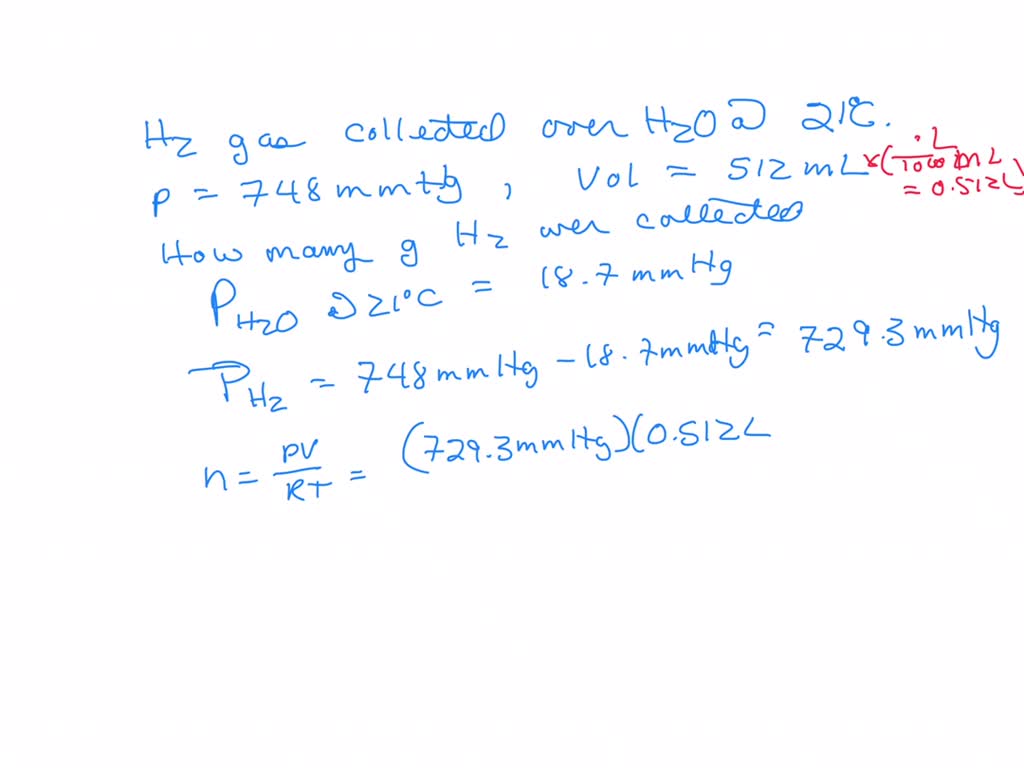 H2 gas collected over H2O @ 21°C.
p = 748 mmHg, Vol = 512 mL x (1 L / 1000 mL) = 0.512L
How many g H2 wer collected
PH2O @ 21°C = 18.7 mmHg
PH2 = 748 mmHg - 18.7 mmHg = 729.3 mmHg
n = PV / RT = (729.3 mmHg)(0.512L